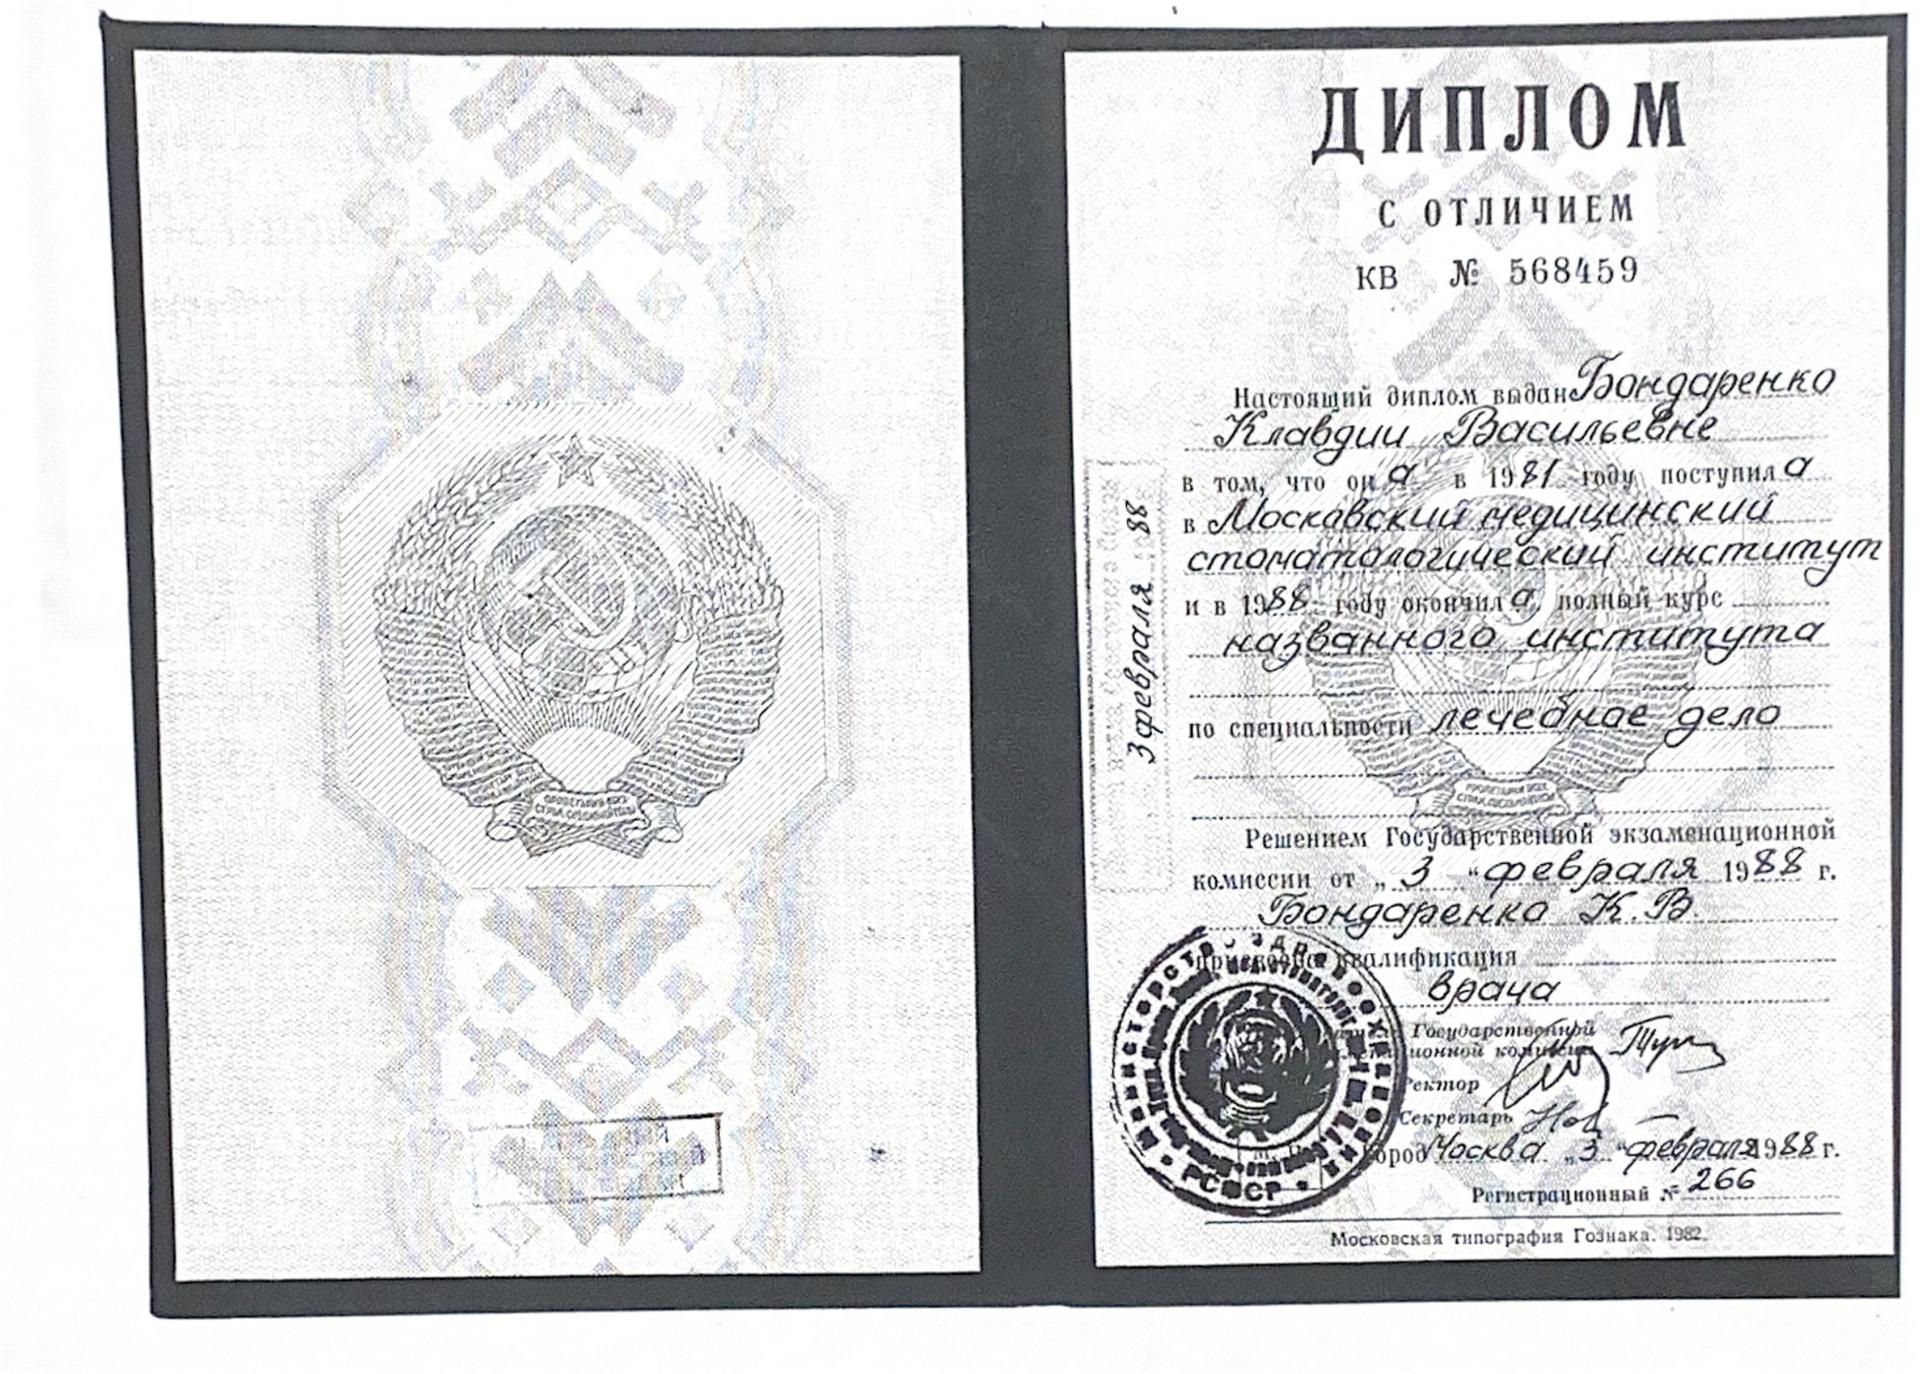 ПРОЛЕТАРИИ ВСЕХ
СТРАН, СОЕДИНЯЙТЕСЬ
ДИПЛОМ
С ОТЛИЧИЕМ
КВ № 568459
Настоящий диплом выдан Бондаренко
Клавдии Васильевне
в том, что он а в 1981 году поступил а
в Московский медицинский
стоматологический институт
и в 1988 году окончил а полный курс
названного института
по специальности лечебное дело
ПРОЛЕТАРИИ ВСЕХ
СТРАН, СОЕДИНЯЙТЕСЬ
Решением Государственной экзаменационной
комиссии от „ 3 “ февраля 1988 г.
Бондаренко К.В.
присвоена квалификация
врача
Государственной
комиссии
Ректор
Секретарь
Город Москва „ 3 “ февраля 1988 г.
Регистрационный № 266
Московская типография Гознака. 1982.
3 февраля 88
МИНИСТЕРСТВО ЗДРАВООХРАНЕНИЯ
РСФСР